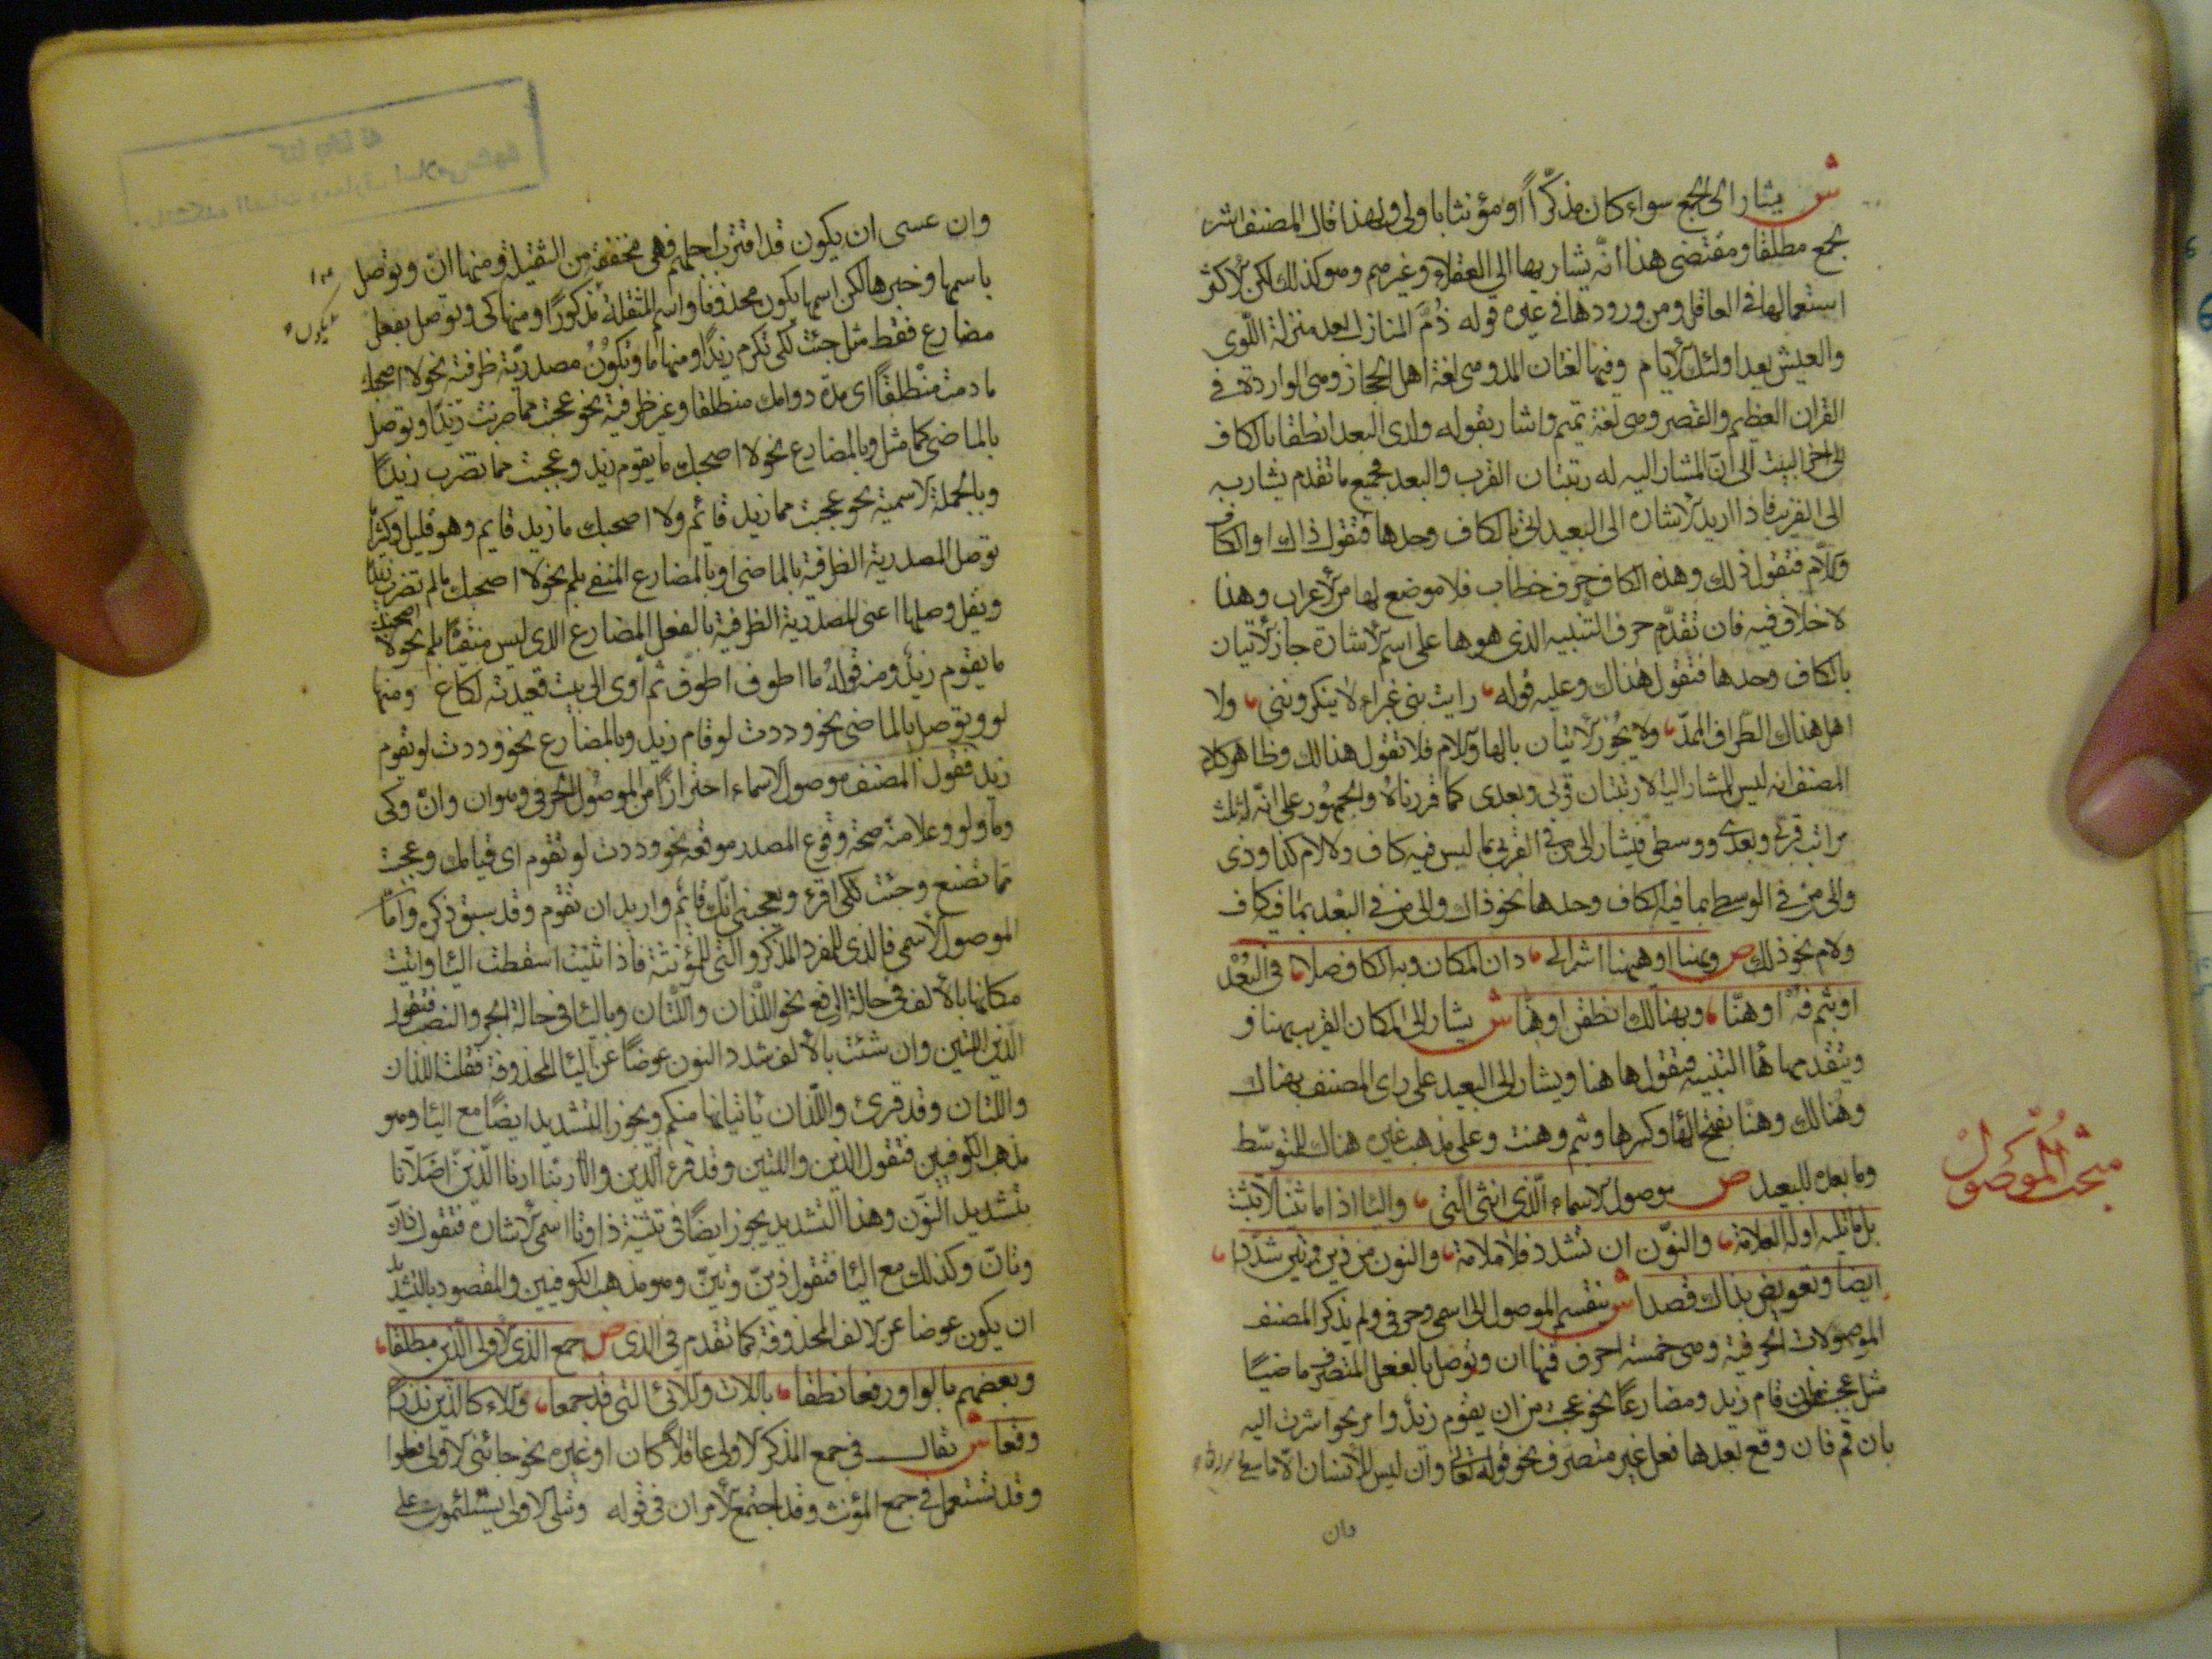 ش يشار الى الجمع سواء كان مذكّراً او مؤنثا باولى ولهذا قال المصنف اشر
بجمع مطلقا ومقتضى هذا انّه يشار بها الى العقلاء وغيرهم وهو كذلك لكن الاكثر
استعمالها في العاقل ومن ورودها في غيره قوله ذُمّ المنازل بعد منزلة اللّوى
والعيش بعد اولئك الأيام وفيها لغتان المد وهى لغة اهل الحجاز وهى الواردة في
القران العظيم والقصر وهى لغة تميم واشار بقوله ولدى البعد انطقا بالكاف
الى اخر البيت الى انّ المشار اليه له رتبتان القرب والبعد فجميع ما تقدم يشار به
الى القريب فاذا اريد الاشارة الى البعيد اتى بالكاف وحدها فتقول ذاك او الكاف
والّلام فتقول ذلك وهذه الكاف حرف خطاب فلا موضع لها من الأعراب وهذا
لا خلاف فيه فان تقدّم حرف التنبيه الذى هو ها على اسم الاشارة جاز الاتيان
بالكاف وحدها فتقول هذاك وعليه قوله رايت بنى غبراء لا ينكرونني ولا
اهل هذاك الطّراف الممدّ ولا يجوز الاتيان بالها والّلام فلا تقول هذالك وظاهر كلام
المصنف انه ليس للمشار اليه الا رتبتان قربى وبعدى كما قررناه والجمهُور على انّه له ثلث
مراتب قربى وبعدى ووسطى فيشار الى من في القربى بما ليس فيه كاف ولا لام كذا وذى
والى من في الوسطى بما فيه الكاف وحدها نحو ذاك والى من في البُعْدى بما فيه كاف
ولام نحو ذلك ص وبهنا او هيهنا اشر الى دان المكان وبه الكاف صلا في البُعْد
او بثم فُه او هنّا وبهنالك انطقن او هِنا ش يشار الى المكان القريب بهنا و
ويتقدمها ها التنبيه فتقول ها هنا ويشار الى البعيد على راى المصنف بهناك
وهُنالك وهنّا بفتح الها وكسرها وثم وهنت وعلى مذهب غيره هناك للمتوسّط
وما بعده للبعيد ص موصول الاسماء الّذى انثى الّتى واليا اذا ما ثنيا لا تثبت
مبحث المُوصُول
بل ما تليه اوله العلامة والنوّن ان تشدد فلا ملامة والنون من ذين وتين شدّدا
ايضا وتعويض بذاك قصدا ش ينقسم الموصول الى اسمى وحرفى ولم يذكر المصنف
الموصولات الحرفية وهى خمسة احرف فمنها ان وتوصل بالفعل المتصرف ماضيًا
مثل عجبت من ان قام زيد ومضارعًا نحو عجبت من ان يقوم زيدٌ وامر نحو اشرت اليه
بان قم فان وقع بعدها فعل غير متصرف نحو قوله تعالى وان ليس للأنسان الّا ما سعى
وان
وان عسى ان يكون قد اقترب اجلهم فهى مخففة من الثقيلة ومنها انّ وتوصل
باسمها وخبرها لكن اسمها يكون محذوفا واسم المثقلة مذكورًا ومنها كى وتوصل بفعل
مضارع فقط مثل جئت لكى تكرم زيدًا ومنها ما وتكوُن مصدريّة ظرفية نحو لا اصحبك
ما دمت منْطلقاً اى مدّة دوامك منطلقا وغير ظرفية نحو عجبت مما ضربت زيدًا وتوصل
بالماضى كما مثل وبالمضارع نحو لا اصحبك ما يقوم زيد وعجبت مما تضرب زيداً
وبالجُملة الاسمية نحو عجبت مما زيد قائم ولا اصحبك ما زيد قايم وهو قليل واكثر
توصل المصدرية الظرفية بالماضى او بالمضارع المنفى بلم نحو لا اصحبك ما لم تضرب زيداً
ويقل وصلها اعنى المصدرية الظرفية بالفعل المضارع الذى ليس منفيًّا بلم نحو لا اصحبك
ما يقوم زيدٌ ومنه قوله ما اطوف اطوف ثم أوى الى بيت قعيدته لكاع ومنها
لو وتوصل بالماضى نحو وددت لو قام زيد وبالمضارع نحو وددت لو يقوم
زيد فقول المصنف موصول الاسماء احترازًا من الموصُول الحرفى وهو ان وانّ وكى
وما ولو وعلامته صحة وقوع المصدر موقعه نحو وددت لو تقوم اى قيامك وعجبت
مما تصنع وجئت لكى اقرء ويعجبنى انّك قائم واريد ان تقوم وقد سبق ذكره وامّا
الموصول الأسمى فالذى للمفرد المذكر والتى للمؤنثة فاذا ثنيت اسقطت اليا واتيت
مكانها بالألف في حالة الرفع نحو اللّذان واللّتان وباليا في حالة الجر والنصب فتقول
الّذين اللتين وان شئت بالألف شدد النون عوضًا عن اليا المحذوفة فقلت اللذان
واللتان وقد قرئ واللّذان ياتيانها منكم ويجوز التشديد ايضًا مع اليا وهو
مذهب الكوفيين فتقول الذين واللتين وقد قرء الّذين والا ربّنا ارنا الّذينّ اضلّانا
بتشديد النوّن وهذا التشديد يجوز ايضًا في تثنية ذا وتا اسمى الاشارة فتقول ذانّ
وتانّ وكذلك مع اليا فتقول ذينّ وتينّ وهو مذهب الكوفيين والمقصود بالتشديد
ان يكون عوضا عن الالف المحذوفة كما تقدم في الذى ص جمع الذى الاولى الّذين مطلقا
وبعضهم بالواو رفعا نطقا باللات واللائى التى قد جمعا واللاء كالذين نذرا
وقعا ش يقال في جمع المذكر الاولى عاقلاً كان او غيره نحو جائنى الاولى فعلوا
وقد تستعمل في جمع المؤنث وقد اجتمع الأمران في قوله وتبلى الاولى يستلئمون على